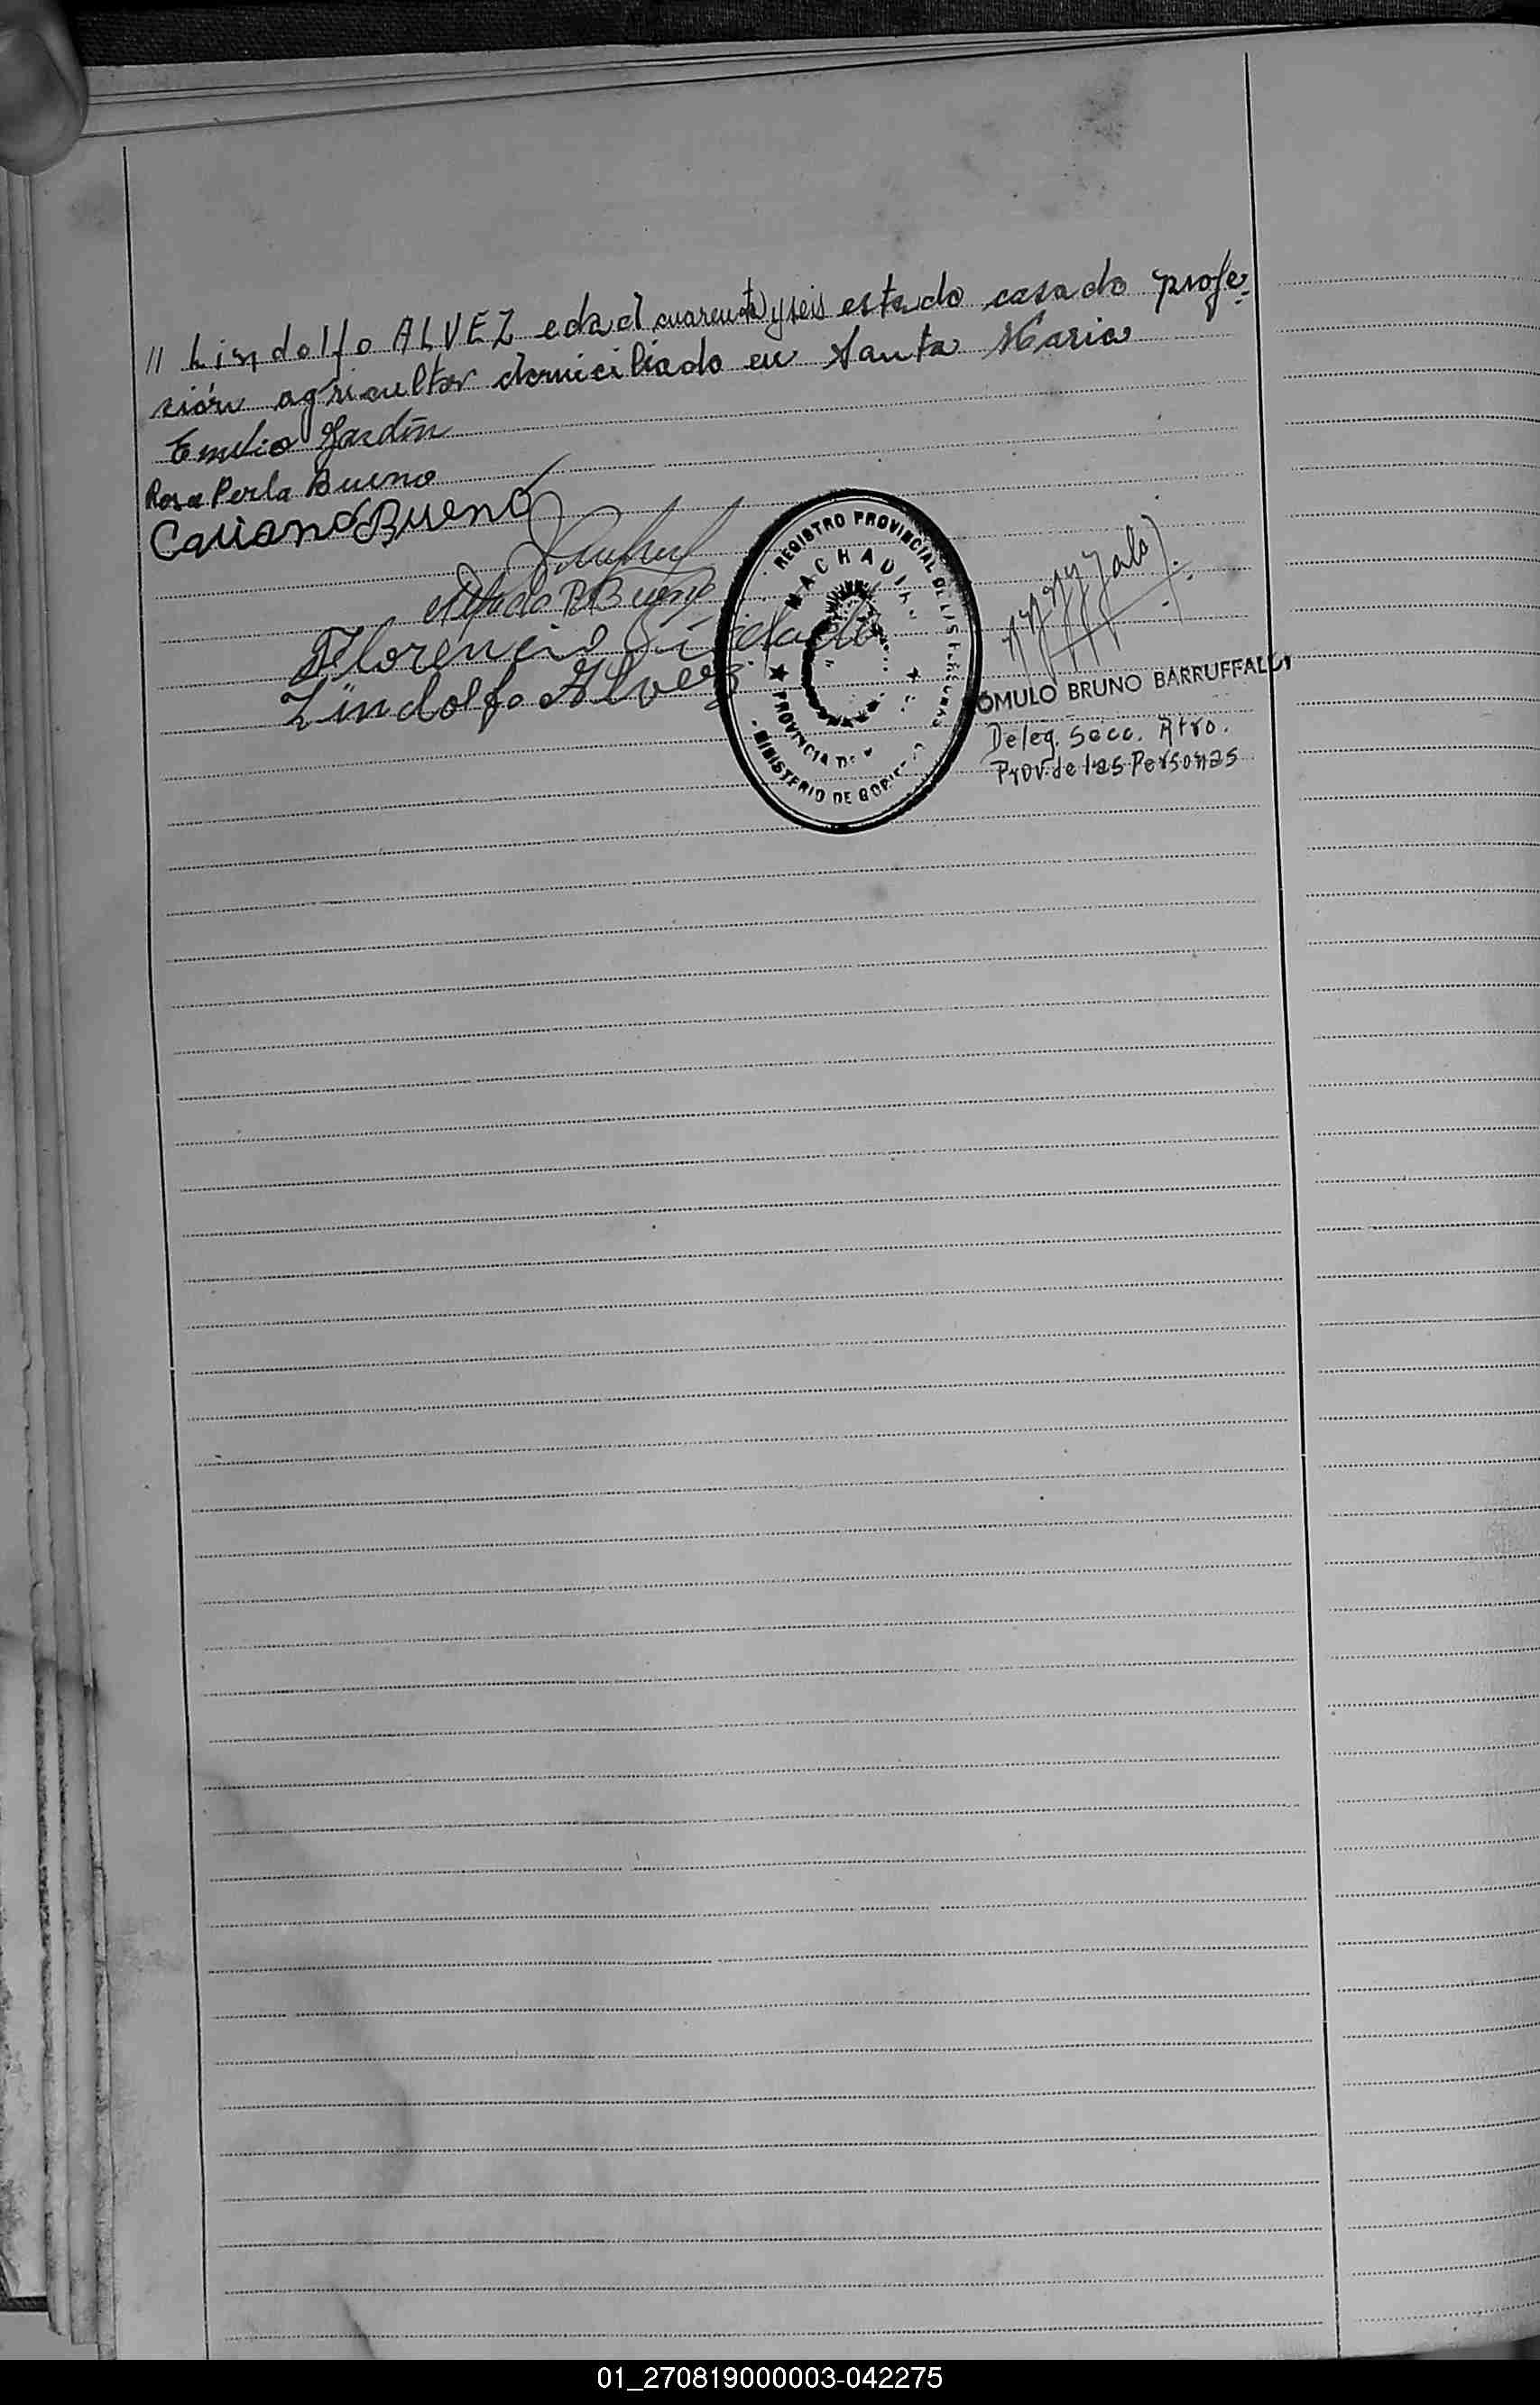 // Lindolfo ALVEZ edad cuarenta y seis estado casado profe-
sión agricultor domiciliado en Santa Maria
Emilio Jardín
Rosa Perla Bueno
Caciano Bueno
P. Bueno
Florencio
Lindolfo Alvez
REGISTRO PROVINCIAL DE LAS PERSONAS
MACHADI
PROVINCIA DE
MINISTERIO DE GOBIE
OMULO BRUNO BARRUFFALDI
Deleg. Secc. Rtro.
Prov. de las Personas
01_270819000003-042275